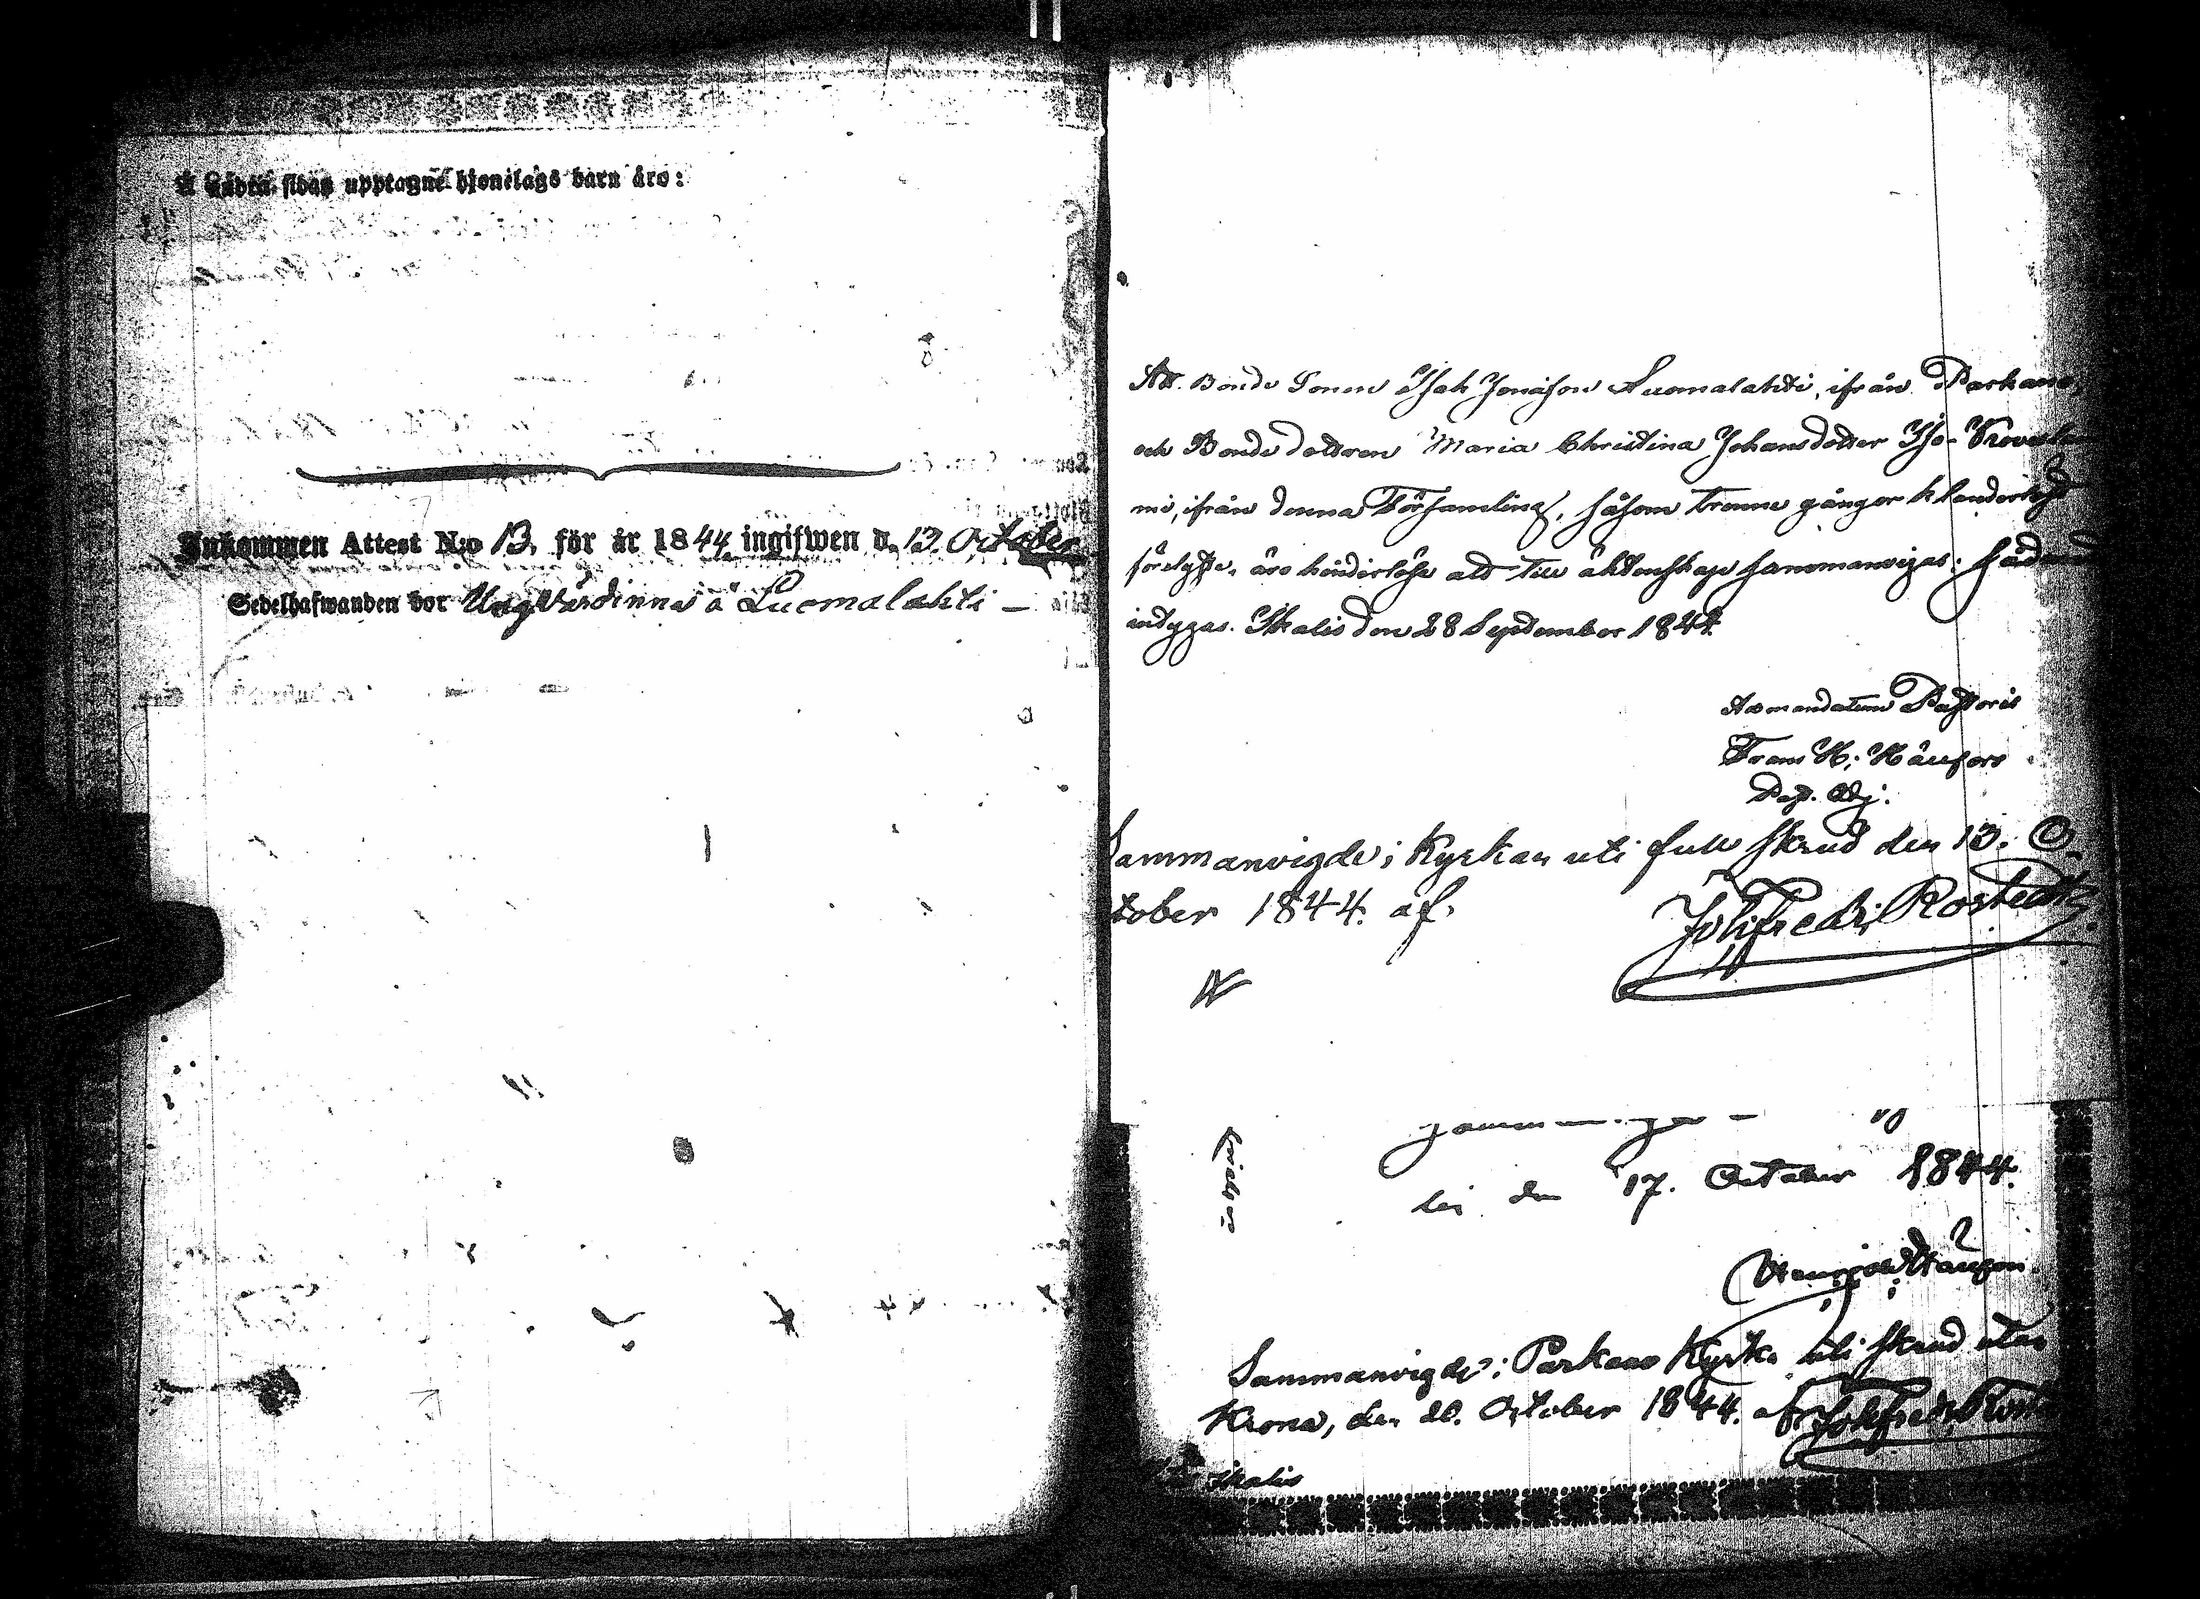 Å andra sidan upptagne hjonelags barn äro:
Inkommen Attest N:o 13, för år 1844 ingifwen d. 13 October
Sedelhafwanden bor Ung Värdinna å Luomalahti —
Att Bonde Sonen Isak Jonasson Luomalahti, ifrån Parkano,
och Bonde dottren Maria Christina Johansdotter Iso-
mi, ifrån denna Församling, såsom trenne gånger klanderlöst
förelyste, äro hinderlöse att till äktenskap sammanvigas;
intygas. Ikalis den 28 September 1844
Ad mandatum Pastoris
Frans H:
Past. Adj.
Sammanvigde i Kyrkan uti full skrud den 13. Oc
tober 1844. af.
Joh Fredr Rostedt
den 17. October 1844.
Sammanvigde i Parkano Kyrka uti skrud utan
Krona, den 20. October 1844. af Joh Fredr
Ikalis